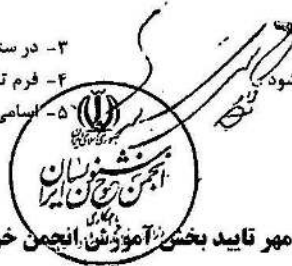 ۳- در ست
شود
۴- فرم ت
۵- اسامی
انجمن خوشنویسان ایران
مهر تایید بخش آموزش انجمن خو